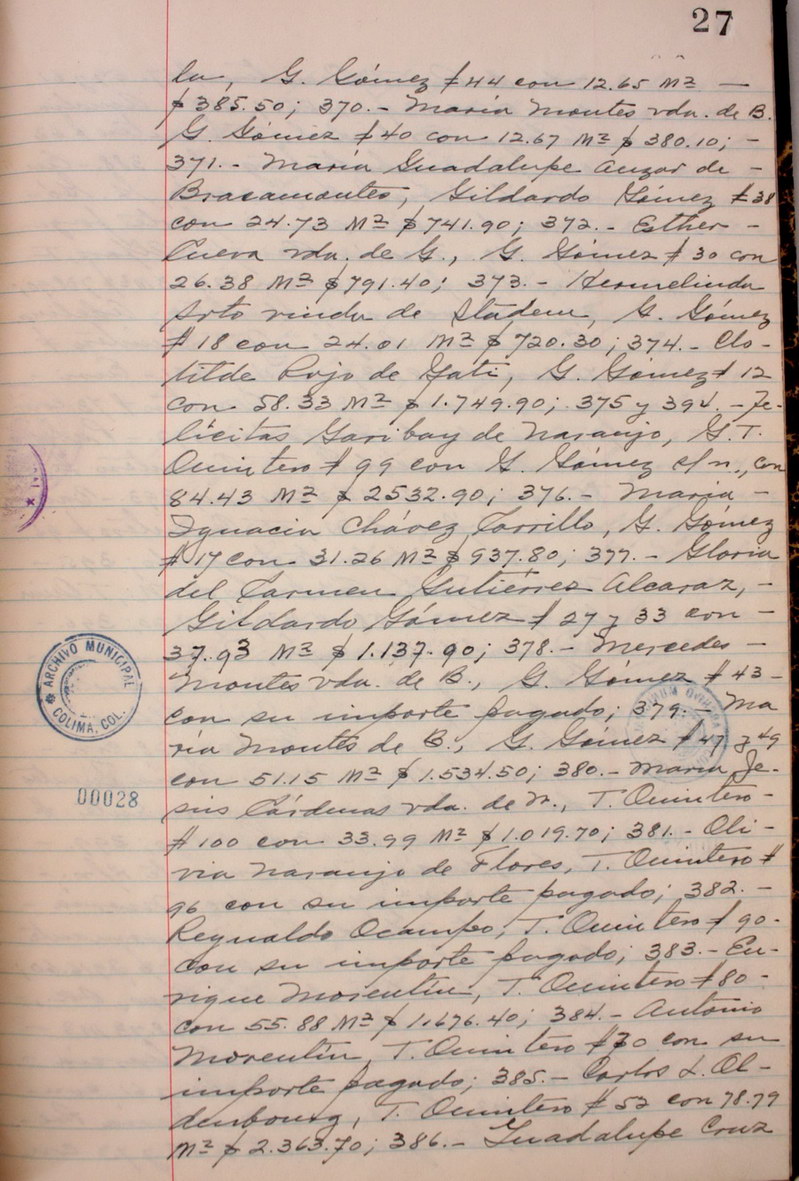 27
la, G. Gómez # 44 con 12.65 M² —
$ 385.50; 370.- María Montes vda. de B.
G. Gómez # 40 con 12.67 M² $ 380.10; -
371.- María Guadalupe Anzar de -
Bracamontes, Gildardo Gómez # 38
con 24.73 M² $ 741.90; 372.- Esther -
Cueva vda. de G., G. Gómez # 30 con
26.38 M² $ 791.40; 373.- Hermelinda
Soto viuda de G. Gómez
# 18 con 24.01 M² $ 720.30; 374.- Clo-
tilde Rojo de Gati, G. Gómez # 12
con 58.33 M² $ 1.749.90; 375 y 394.- Fe-
lícitas Garibay de Naranjo, G. T.
Quintero # 99 con G. Gómez s/n., con
84.43 M² $ 2532.90; 376.- María -
Ignacia Chávez Carrillo, G. Gómez
# 17 con 31.26 M² $ 937.80; 377.- Gloria
del Carmen Gutiérrez Alcaraz, -
Gildardo Gómez # 27 y 33 con -
37.93 M² $ 1.137.90; 378.- Mercedes -
Montes vda. de B., G. Gómez # 43 -
con su importe pagado; 379.- Ma
ría Montes de B., G. Gómez # 47 y 49
con 51.15 M² $ 1.534.50; 380.- María Je-
sús Cárdenas vda. de N., T. Quintero -
# 100 con 33.99 M² $ 1.019.70; 381.- Oli-
via Naranjo de Flores, T. Quintero #
96 con su importe pagado; 382.-
Reynaldo Ocampo, T. Quintero # 90 -
con su importe pagado; 383.- En-
rique Morentín, T. Quintero # 80 -
con 55.88 M² $ 1.676.40; 384.- Antonio
Morentín, T. Quintero # 70 con su
importe pagado; 385.- Carlos L. Ol-
denbourg, T. Quintero # 52 con 78.79
M² $ 2.363.70; 386.- Guadalupe Cruz
ARCHIVO MUNICIPAL
COLIMA, COL.
00028